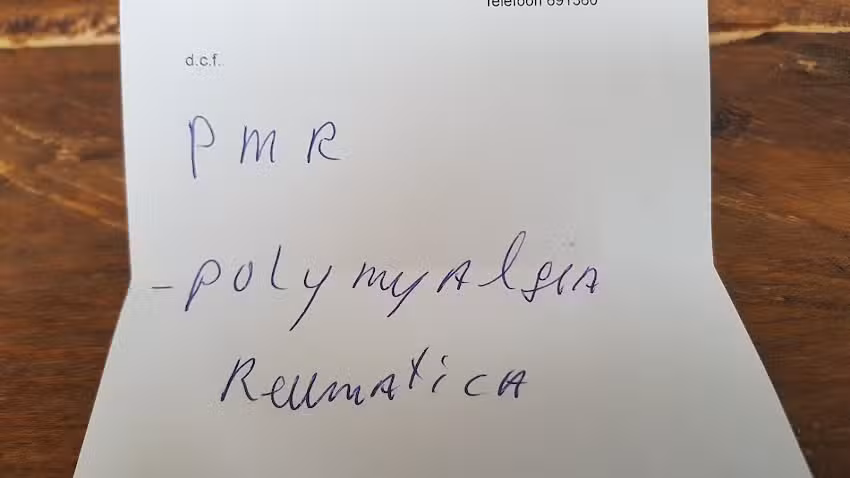 Telefoon 691560
d.c.f.
PMR
- polymyalgia
Reumatica